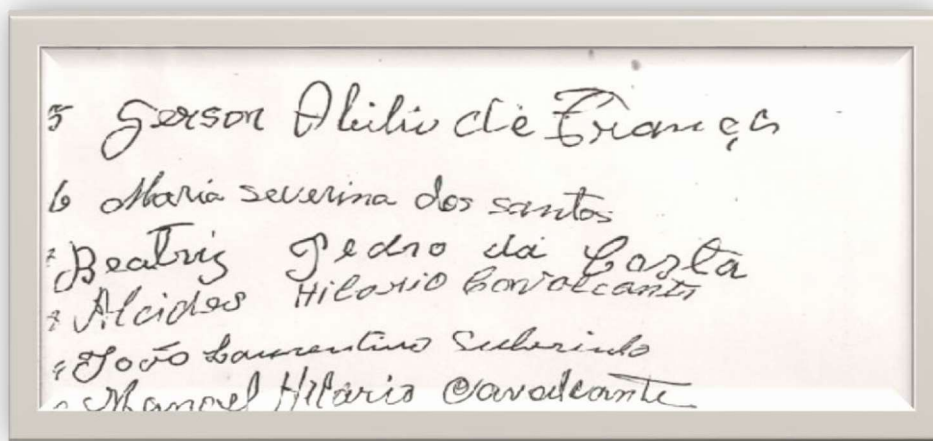 5 Gerson Abilio de França
6 Maria severina dos santos
Beatriz Pedro da Costa
Alcides Hilario Cavalcanti
João Laurentino
Manoel Hilário Cavalcante